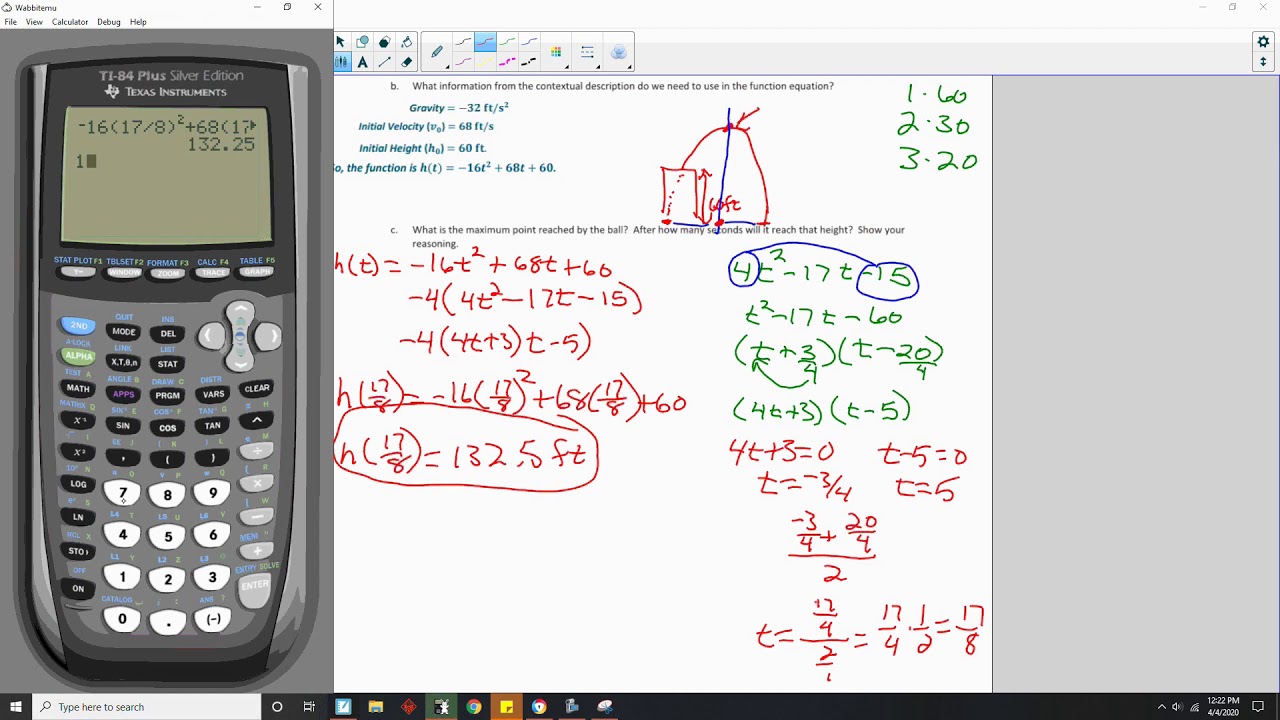 Wabbitemu
File View Calculator Debug Help
TI-84 Plus Silver Edition
TEXAS INSTRUMENTS
-16(17/8)²+68(17
132.25
1
STAT PLOT F1 TBLSET F2 FORMAT F3 CALC F4 TABLE F5
Y= WINDOW ZOOM TRACE GRAPH
QUIT INS
2ND MODE DEL
A-LOCK LINK LIST
ALPHA X,T,θ,n STAT
TEST A ANGLE B DRAW C DISTR
MATH APPS PRGM VARS CLEAR
MATRIX D SIN⁻¹ E COS⁻¹ F TAN⁻¹ G π H
X⁻¹ SIN COS TAN ^
√ I EE J { K } L e M
X² , ( ) ÷
10ˣ N u O v P w Q [ R
LOG 7 8 9 ×
eˣ S L4 T L5 U L6 V ] W
LN 4 5 6 −
RCL X L1 Y L2 Z L3 θ MEM "
STO 1 2 3 +
OFF CATALOG i : ANS ? ENTRY SOLVE
ON 0 . (-) ENTER
b. What information from the contextual description do we need to use in the function equation?
Gravity = −32 ft/s²
Initial Velocity (v₀) = 68 ft/s
Initial Height (h₀) = 60 ft.
o, the function is h(t) = −16t² + 68t + 60.
60ft
1·60
2·30
3·20
c. What is the maximum point reached by the ball? After how many seconds will it reach that height? Show your
reasoning.
h(t) = -16t² + 68t + 60
-4(4t² - 17t - 15)
-4(4t+3)t-5)
h(17/8) = -16(17/8)² + 68(17/8) + 60
h(17/8) = 132.5 ft
4t² - 17t - 15
t² - 17t - 60
(t + 3/4)(t - 20/4)
(4t+3)(t-5)
4t+3=0 t-5=0
t = -3/4 t = 5
-3/4 + 20/4
2
t = 17/4 / 2/1 = 17/4 · 1/2 = 17/8
Type here to search
12:22 PM
4/4/2020